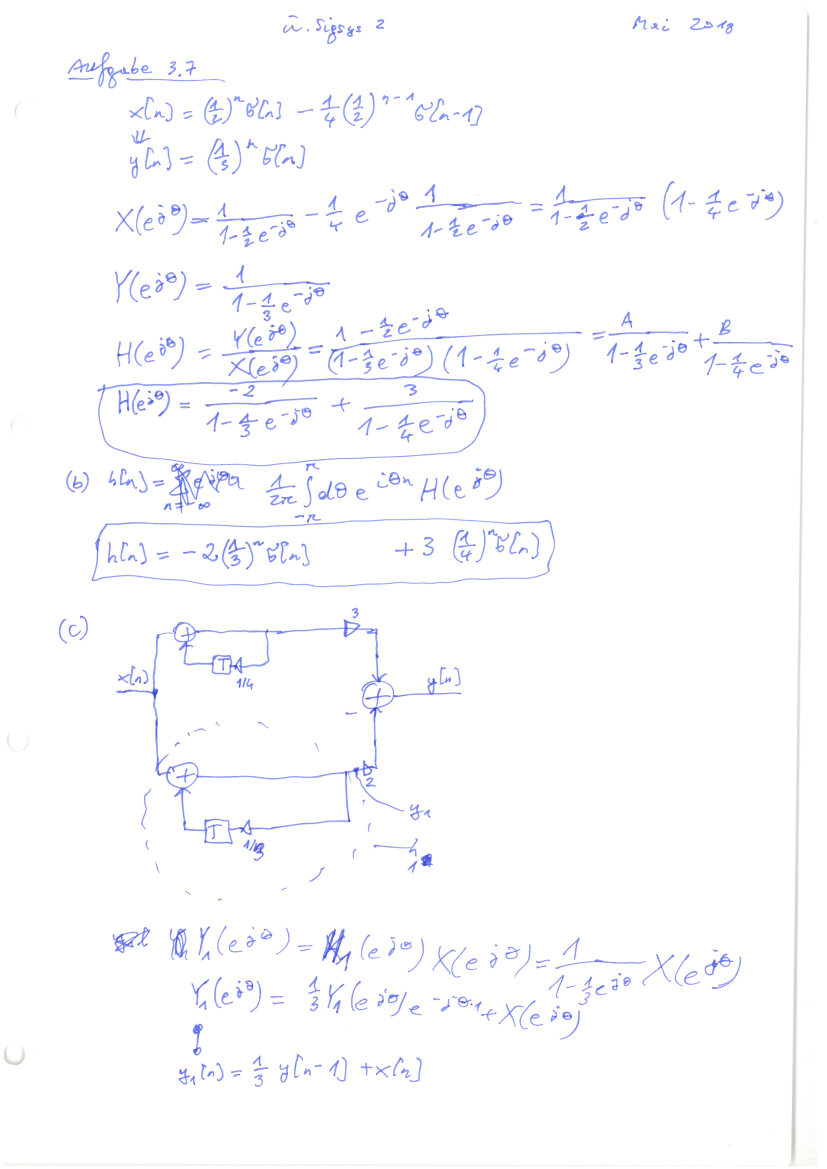 ü. Sigsys 2 Mai 2018
Aufgabe 3.7
x[n] = (1/2)^n σ[n] - 1/4 (1/2)^(n-1) σ[n-1]
⇓
y[n] = (1/3)^n σ[n]
X(e^jθ) = 1/(1 - 1/2 e^-jθ) - 1/4 e^-jθ 1/(1 - 1/2 e^-jθ) = 1/(1 - 1/2 e^-jθ) (1 - 1/4 e^-jθ)
Y(e^jθ) = 1/(1 - 1/3 e^-jθ)
H(e^jθ) = Y(e^jθ)/X(e^jθ) = (1 - 1/2 e^-jθ)/((1 - 1/3 e^-jθ)(1 - 1/4 e^-jθ)) = A/(1 - 1/3 e^-jθ) + B/(1 - 1/4 e^-jθ)
H(e^jθ) = -2/(1 - 1/3 e^-jθ) + 3/(1 - 1/4 e^-jθ)
(b) h[n] = 1/2π ∫_-π^π dθ e^jθn H(e^jθ)
h[n] = -2 (1/3)^n σ[n] + 3 (1/4)^n σ[n]
(c)
3
T
1/4
x[n]
y[n]
+
+
-
+
2
y1
T
1/3
Y1(e^jθ) = H1(e^jθ) X(e^jθ) = 1/(1 - 1/3 e^jθ) X(e^jθ)
Y1(e^jθ) = 1/3 Y1(e^jθ) e^-jθ·1 + X(e^jθ)
y1[n] = 1/3 y[n-1] + x[n]